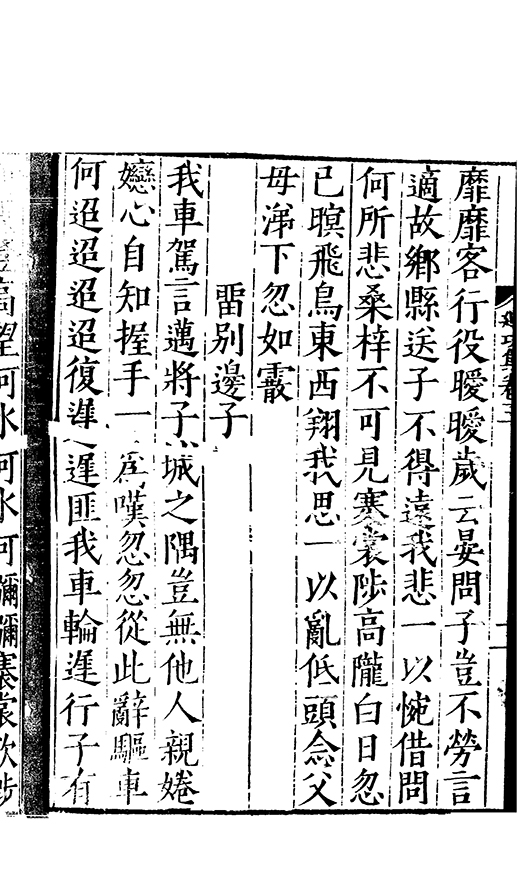 靡靡客行役曖曖歲云晏問子豈不勞言
適故鄉縣送子不得遠我悲一以惋借問
何所悲桑梓不可見褰裳陟高隴白日忽
已暝飛鳥東西翔我思一以亂低頭念父
母涕下忽如霰
畱別邊子
我車駕言邁將子城之隅豈無他人親婘
戀心自知握手一為嘆忽忽從此辭驅車
何迢迢迢迢復遲遲匪我車輪遲行子有
高望河水河水何瀰瀰褰裳欲涉